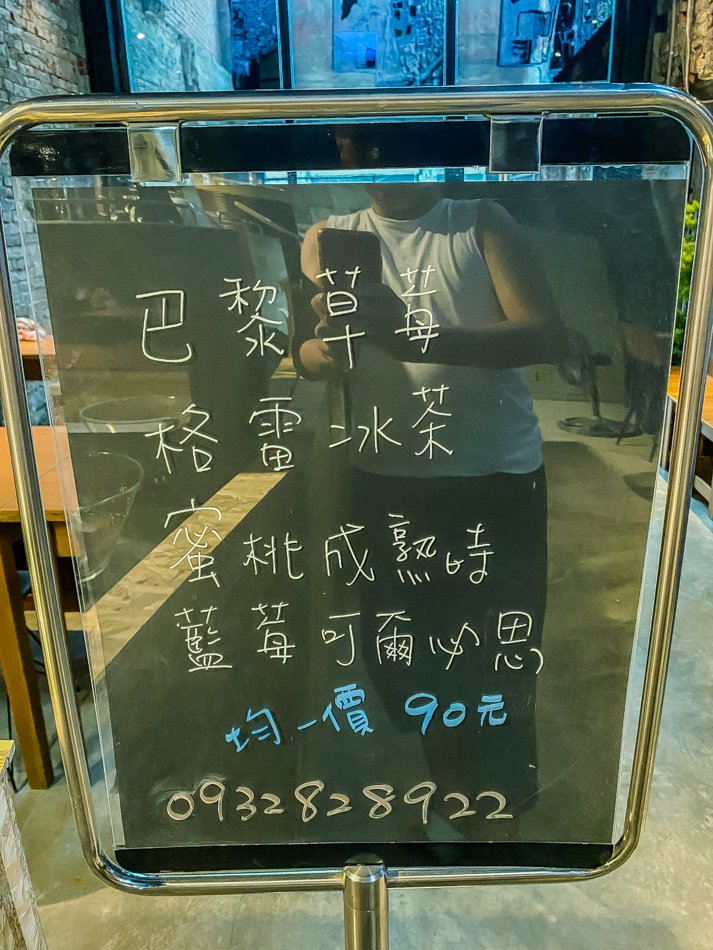 巴黎草莓
格雷冰茶
蜜桃成熟時
藍莓可爾必思
均一價 90元
0932828922